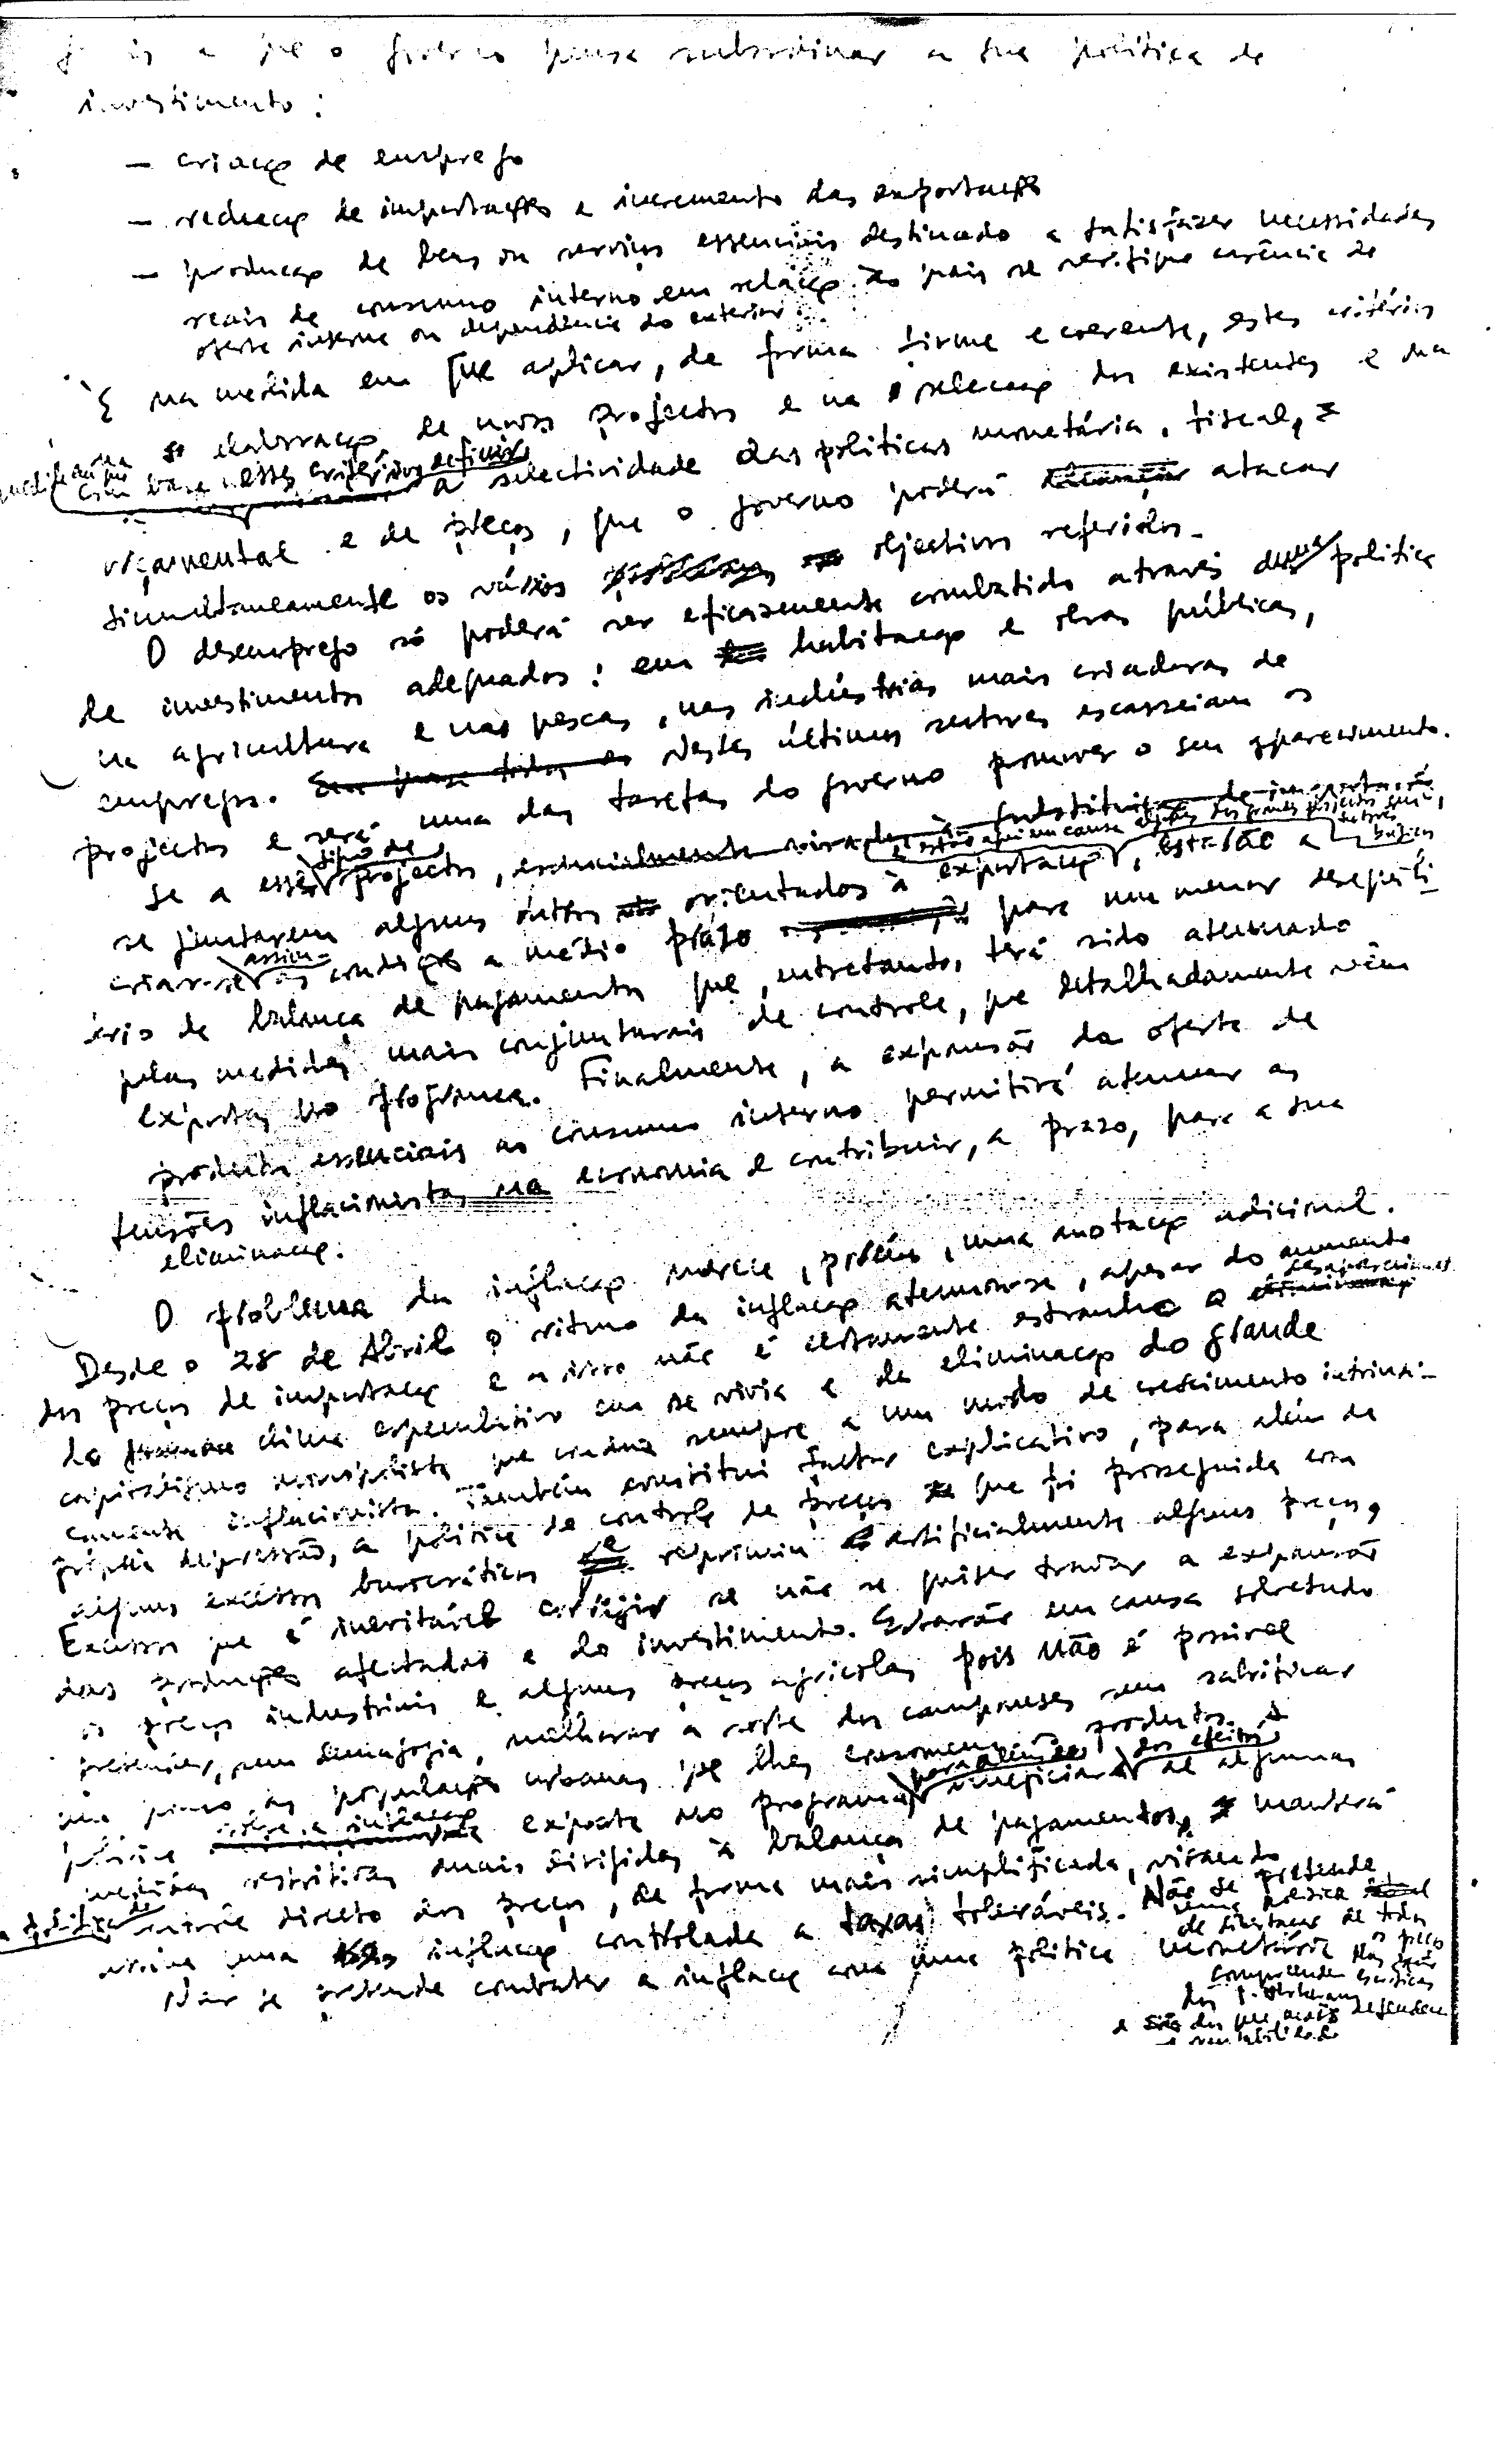 a que o governo pensa subordinar a sua política de
investimento:
— criação de emprego
— redução de importações e incremento das exportações
— produção de bens ou serviços essenciais destinado a satisfazer necessidades
reais de consumo interno em relação ao quais se verifique carência de
oferta interna ou dependência do exterior.
É na medida em que aplicar, de forma firme e coerente, estes critérios
elaboração de novos projectos e na selecção dos existentes e na
com base nesses critérios definir
a selectividade das políticas monetária, fiscal,
orçamental e de preços, que o governo poderá atacar
simultaneamente os vários objectivos referidos.
O desemprego só poderá ser eficazmente combatido através duma política
de investimentos adequados: em habitação e obras públicas,
na agricultura e nas pescas, nas indústrias mais criadoras de
emprego. Em quase todos os Nestes últimos sectores escasseiam os
projectos e será uma das tarefas do governo promover o seu aparecimento.
Se a esse tipo de projectos, especialmente virados à substituição de importações
se juntarem alguns outros orientados à exportação, estarão a
criar-se assim as condições a médio prazo para um menor desequilí-
brio da balança de pagamentos que, entretanto, terá sido atenuado
pelas medidas mais conjunturais de controle, que detalhadamente vêm
expostas no programa. Finalmente, a expansão da oferta de
produtos essenciais ao consumo interno permitirá atenuar as
tensões inflacionistas na economia e contribuir, a prazo, para a sua
eliminação.
O problema da inflação merece, porém, uma anotação adicional.
Desde o 28 de Abril o ritmo da inflação atenuou-se, apesar do aumento
dos preços de importação e a isso não é certamente estranho o desaparecimento
do clima especulativo em que se vivia e da eliminação do grande
capitalismo monopolista que conduz sempre a um modo de crescimento intrinse-
camente inflacionista. Também constitui factor explicativo, para além da
própria depressão, a política de controle de preços que foi prosseguida com
alguns excessos burocráticos e reprimiu artificialmente alguns preços,
Excessos que é inevitável corrigir se não se quiser travar a expansão
das produções afectadas e do investimento. Estarão em causa sobretudo
os preços industriais e alguns preços agrícolas pois não é possível
pretender, sem demagogia, melhorar a sorte dos camponeses sem sacrificar
um pouco as populações urbanas que lhes consomem os produtos. A
política sobre a inflação exposta no programa, para além de beneficiar dos efeitos de algumas
medidas restritivas mais dirigidas à balança de pagamentos, manterá
a política de controle directo dos preços, de forma mais simplificada, visando
uma inflação controlada a taxas toleráveis. Não se pretende
uma política
de libertação de todos
os preços
Não se pretende combater a inflação com uma política monetária
e dos que mais dependem